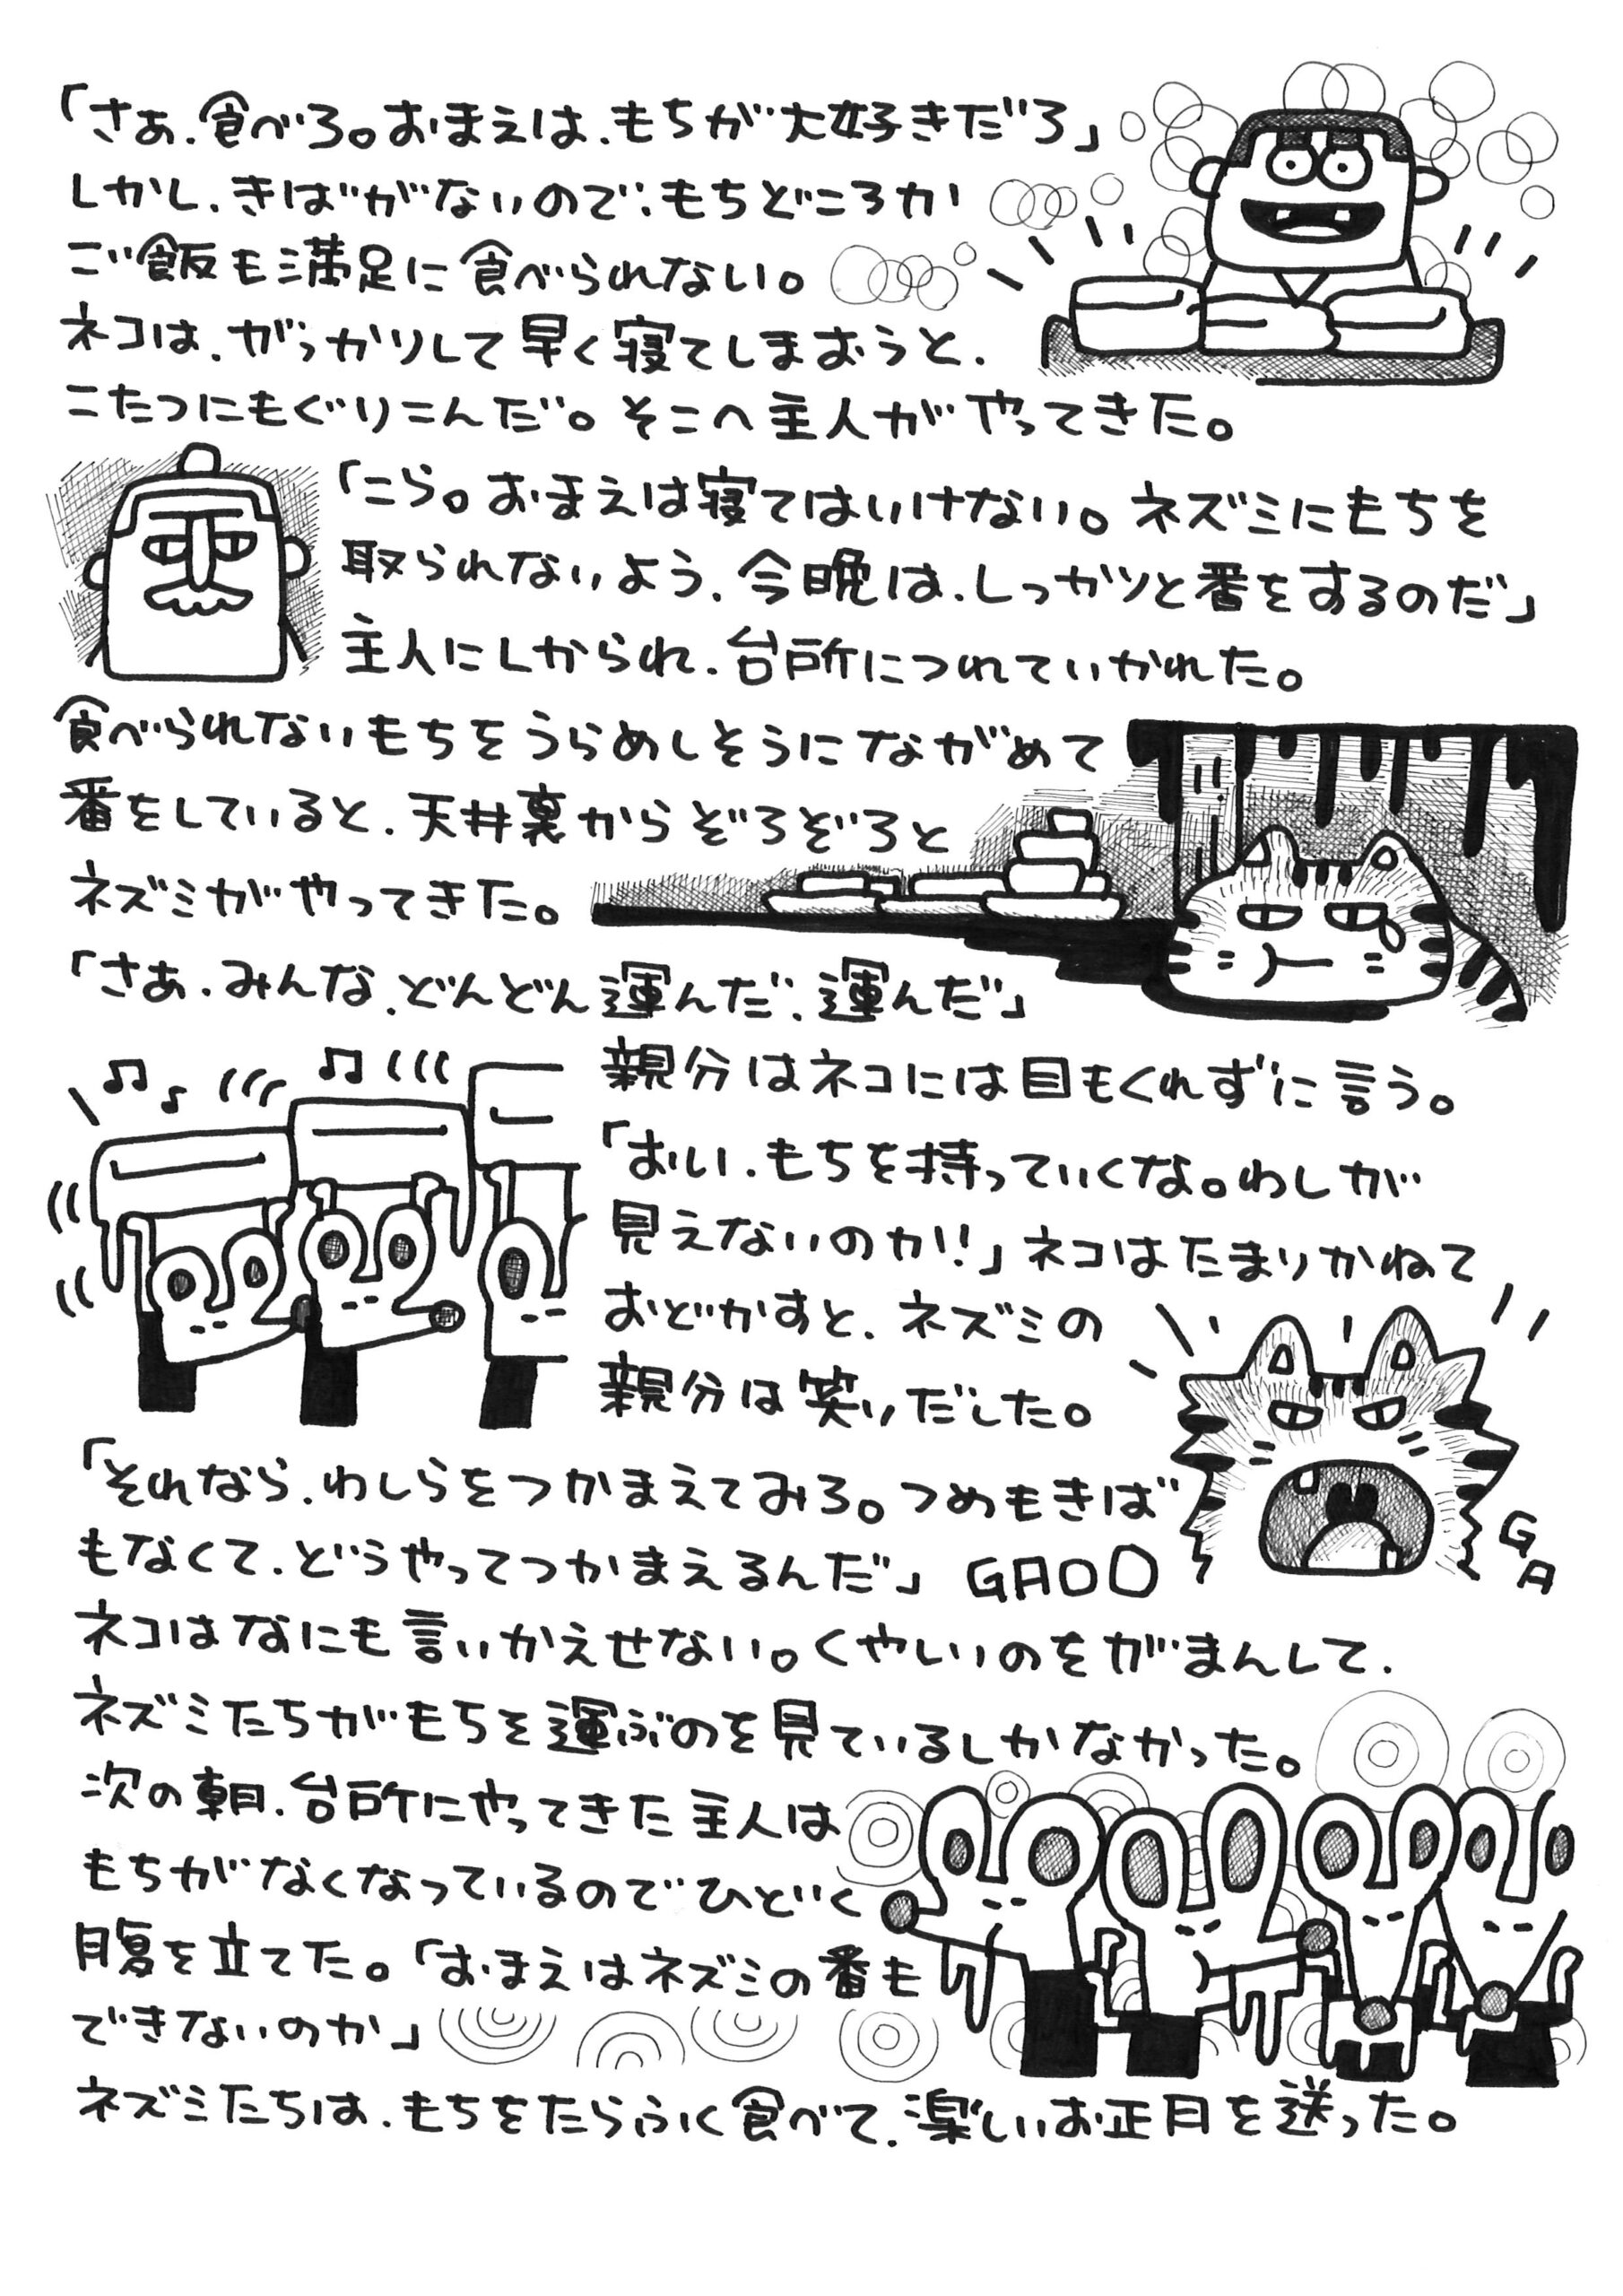 「さぁ、食べろ。おまえは、もちが大好きだろ」
しかし、きばがないので、もちどころか
ご飯も満足に食べられない。
ネコは、がっかりして早く寝てしまおうと、
こたつにもぐりこんだ。そこへ主人がやってきた。
「こら。おまえは寝てはいけない。ネズミにもちを
取られないよう、今晩は、しっかりと番をするのだ」
主人にしかられ、台所につれていかれた。
食べられないもちをうらめしそうにながめて
番をしていると、天井裏からぞろぞろと
ネズミがやってきた。
「さあ、みんな、どんどん運んだ、運んだ」
親分はネコには目もくれずに言う。
「おい、もちを持っていくな。わしが
見えないのか!!」ネコはたまりかねて
おどかすと、ネズミの
親分は笑いだした。
「それなら、わしらをつかまえてみろ。つめもきば
もなくて、どうやってつかまえるんだ」 GAOO
GA
ネコはなにも言いかえせない。くやしいのをがまんして、
ネズミたちがもちを運ぶのを見ているしかなかった。
次の朝、台所にやってきた主人は
もちがなくなっているのでひどく
腹を立てた。「おまえはネズミの番も
できないのか」
ネズミたちは、もちをたらふく食べて、楽しいお正月を送った。